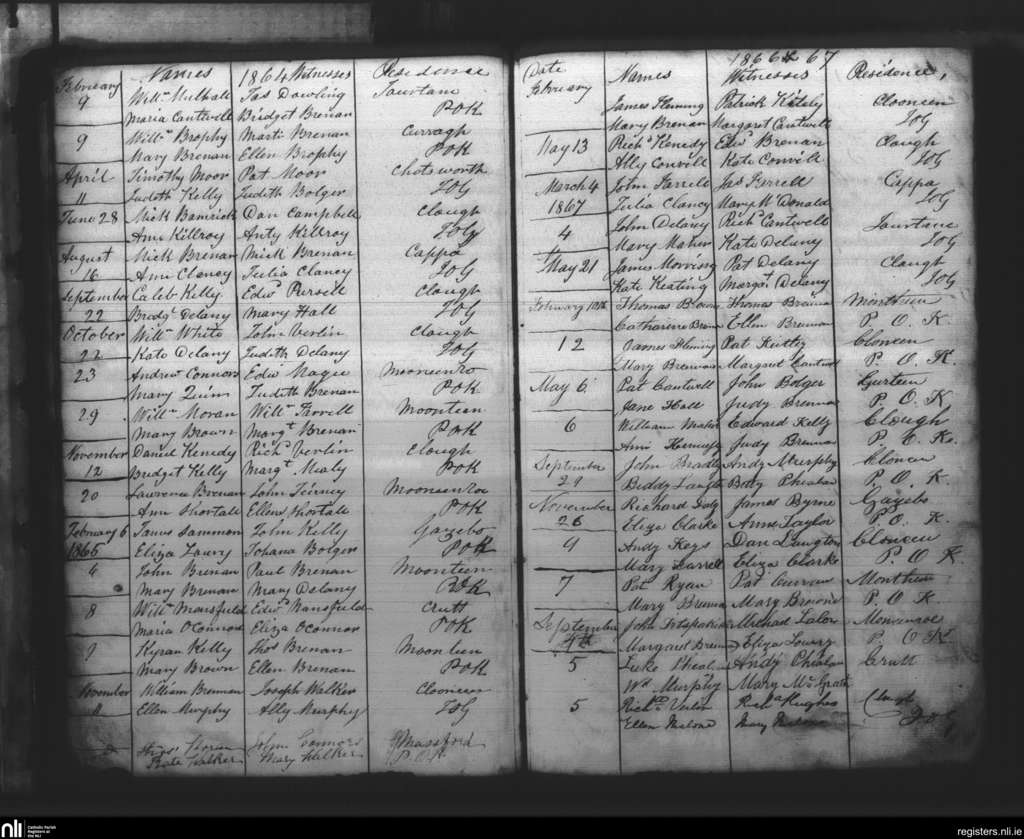 Names 1864 Witnesses Residence
February
9 Willm Mulhall Jas Dowling Tourtane
Maria Cantwell Bridget Brenan POK
9 Willm Brophy Marts Brenan Curragh
Mary Brenan Ellen Brophy POK
April Timothy Moor Pat Moor Chatsworth
11 Judith Kelly Judith Bolger JOG
June 28 Mick Bamrick Dan Campbell Clough
Ann Killroy Anty Killroy JOG
August Mick Brenan Mick Brenan Cappa
16 Ann Clancy Julia Clancy JOG
September Caleb Kelly Edwd Pursell Clough
22 Bridgt Delany Mary Hall JOG
October Willm White John Verlin Clough
22 Kate Delany Judith Delany JOG
23 Andrew Connors Edwd Magee Mooneenroe
Mary Quinn Judith Brenan POK
29 Willm Moran Willm Farrell Moonteen
Mary Brown Margt Brenan POK
November Daniel Kenedy Richd Verlin Clough
12 Bridget Kelly Margt Mealy POK
20 Lawrence Brenan John Tierney Mooneenroe
Ann Shortall Ellen Shortall POK
February 6 James Sammon John Kelly Gazebo
1865 Eliza Lawry Johana Bolger POK
4 John Brenan Paul Brenan Moonteen
Mary Brenan Mary Delany POK
8 Willm Mansfield Edwd Mansfield Crutt
Maria OConnor Eliza OConnor POK
9 Kyran Kelly Thos Brenan Moonteen
Mary Brown Ellen Brenan POK
November William Brennan Joseph Walker Clooneen
11 Ellen Murphy Ally Murphy JOG
John Connors Massford
Kate Walker Mary Walker P.O.K.
1866 & 67
Date Names Witnesses Residence,
February
James Fleming Patrick Kitely Clooneen
Mary Brenan Margaret Cantwell JOG
May 13 Richd Kenedy Edwd Brenan Clough
Ally Convill Kate Convill JOG
March 4 John Farrell Jas Farrell Cappa
1867 Julia Clancy Mary McDonald JOG
4 John Delany Richd Cantwell Tourtane
Mary Maher Kate Delany JOG
May 21 James Morring Pat Delany Clough
Kate Keating Margat Delany JOG
February Thomas Brown Thomas Brennan Montheen
Catharine Brown Ellen Brennan P. O. K.
12 James Fleming Pat Kietly Cloneen
Mary Brennan Margaret Cantwell P. O. K.
May 6 Pat Cantwell John Bolger Gurteen
Jane Hall Judy Brennan P. O. K.
6 William Edward Kelly Clough
Ann Judy Brennan P. O. K.
September John Bradley Andy Murphy Cloneen
29 Biddy Betty Phealan P. O. K.
November Richard James Byrne Gazebo
26 Eliza Clarke Anne Taylor P. O. K.
9 Andy Keys Dan Langton Cloneen
Mary Farrell Eliza Clarke P. O K
7 Pat Ryan Pat Curran Montheen
Mary Brennan Mary Browne P. O K.
September John Fitzpatrick Michael Lalor Monenroe
4th Margaret Brennan Eliza Lowry P. O K.
5 Luke Pheal Andy Phealan Crutt
Wd Murphy Mary McGrath
5 Richd Verlin Richd Hughes Clough
Ellen Malone Mary Malone JOG
nli Catholic Parish Registers at the NLI
registers.nli.ie